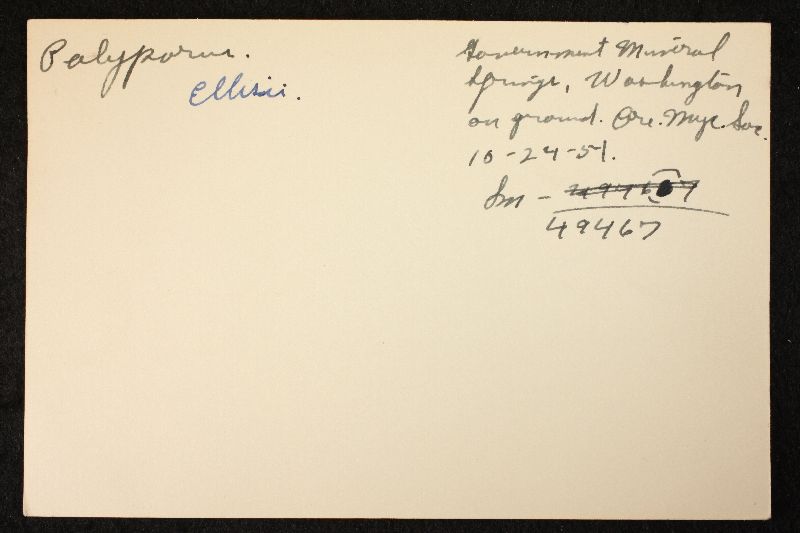 Polyporus.
Ellisii.
Government Mineral
Springs, Washington
on ground. Ore. Myc. Soc.
10-24-51.
Sm -
49467